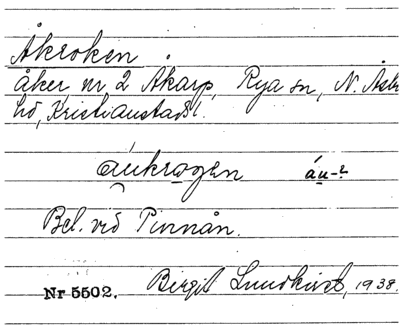 Åkroken
åker nr 2 Åkarp, Rya sn, N. Åsbo
hd, Kristianstads l.
áukrogen áu-?
Bel. vid Pinnån.
Nr 5502. Birgit Lundkvist, 1938.